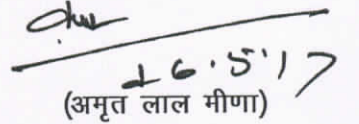 26.5.17
(अमृत लाल मीणा)